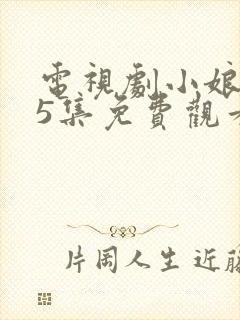 電視劇小娘
5集免費觀
片岡人生近藤